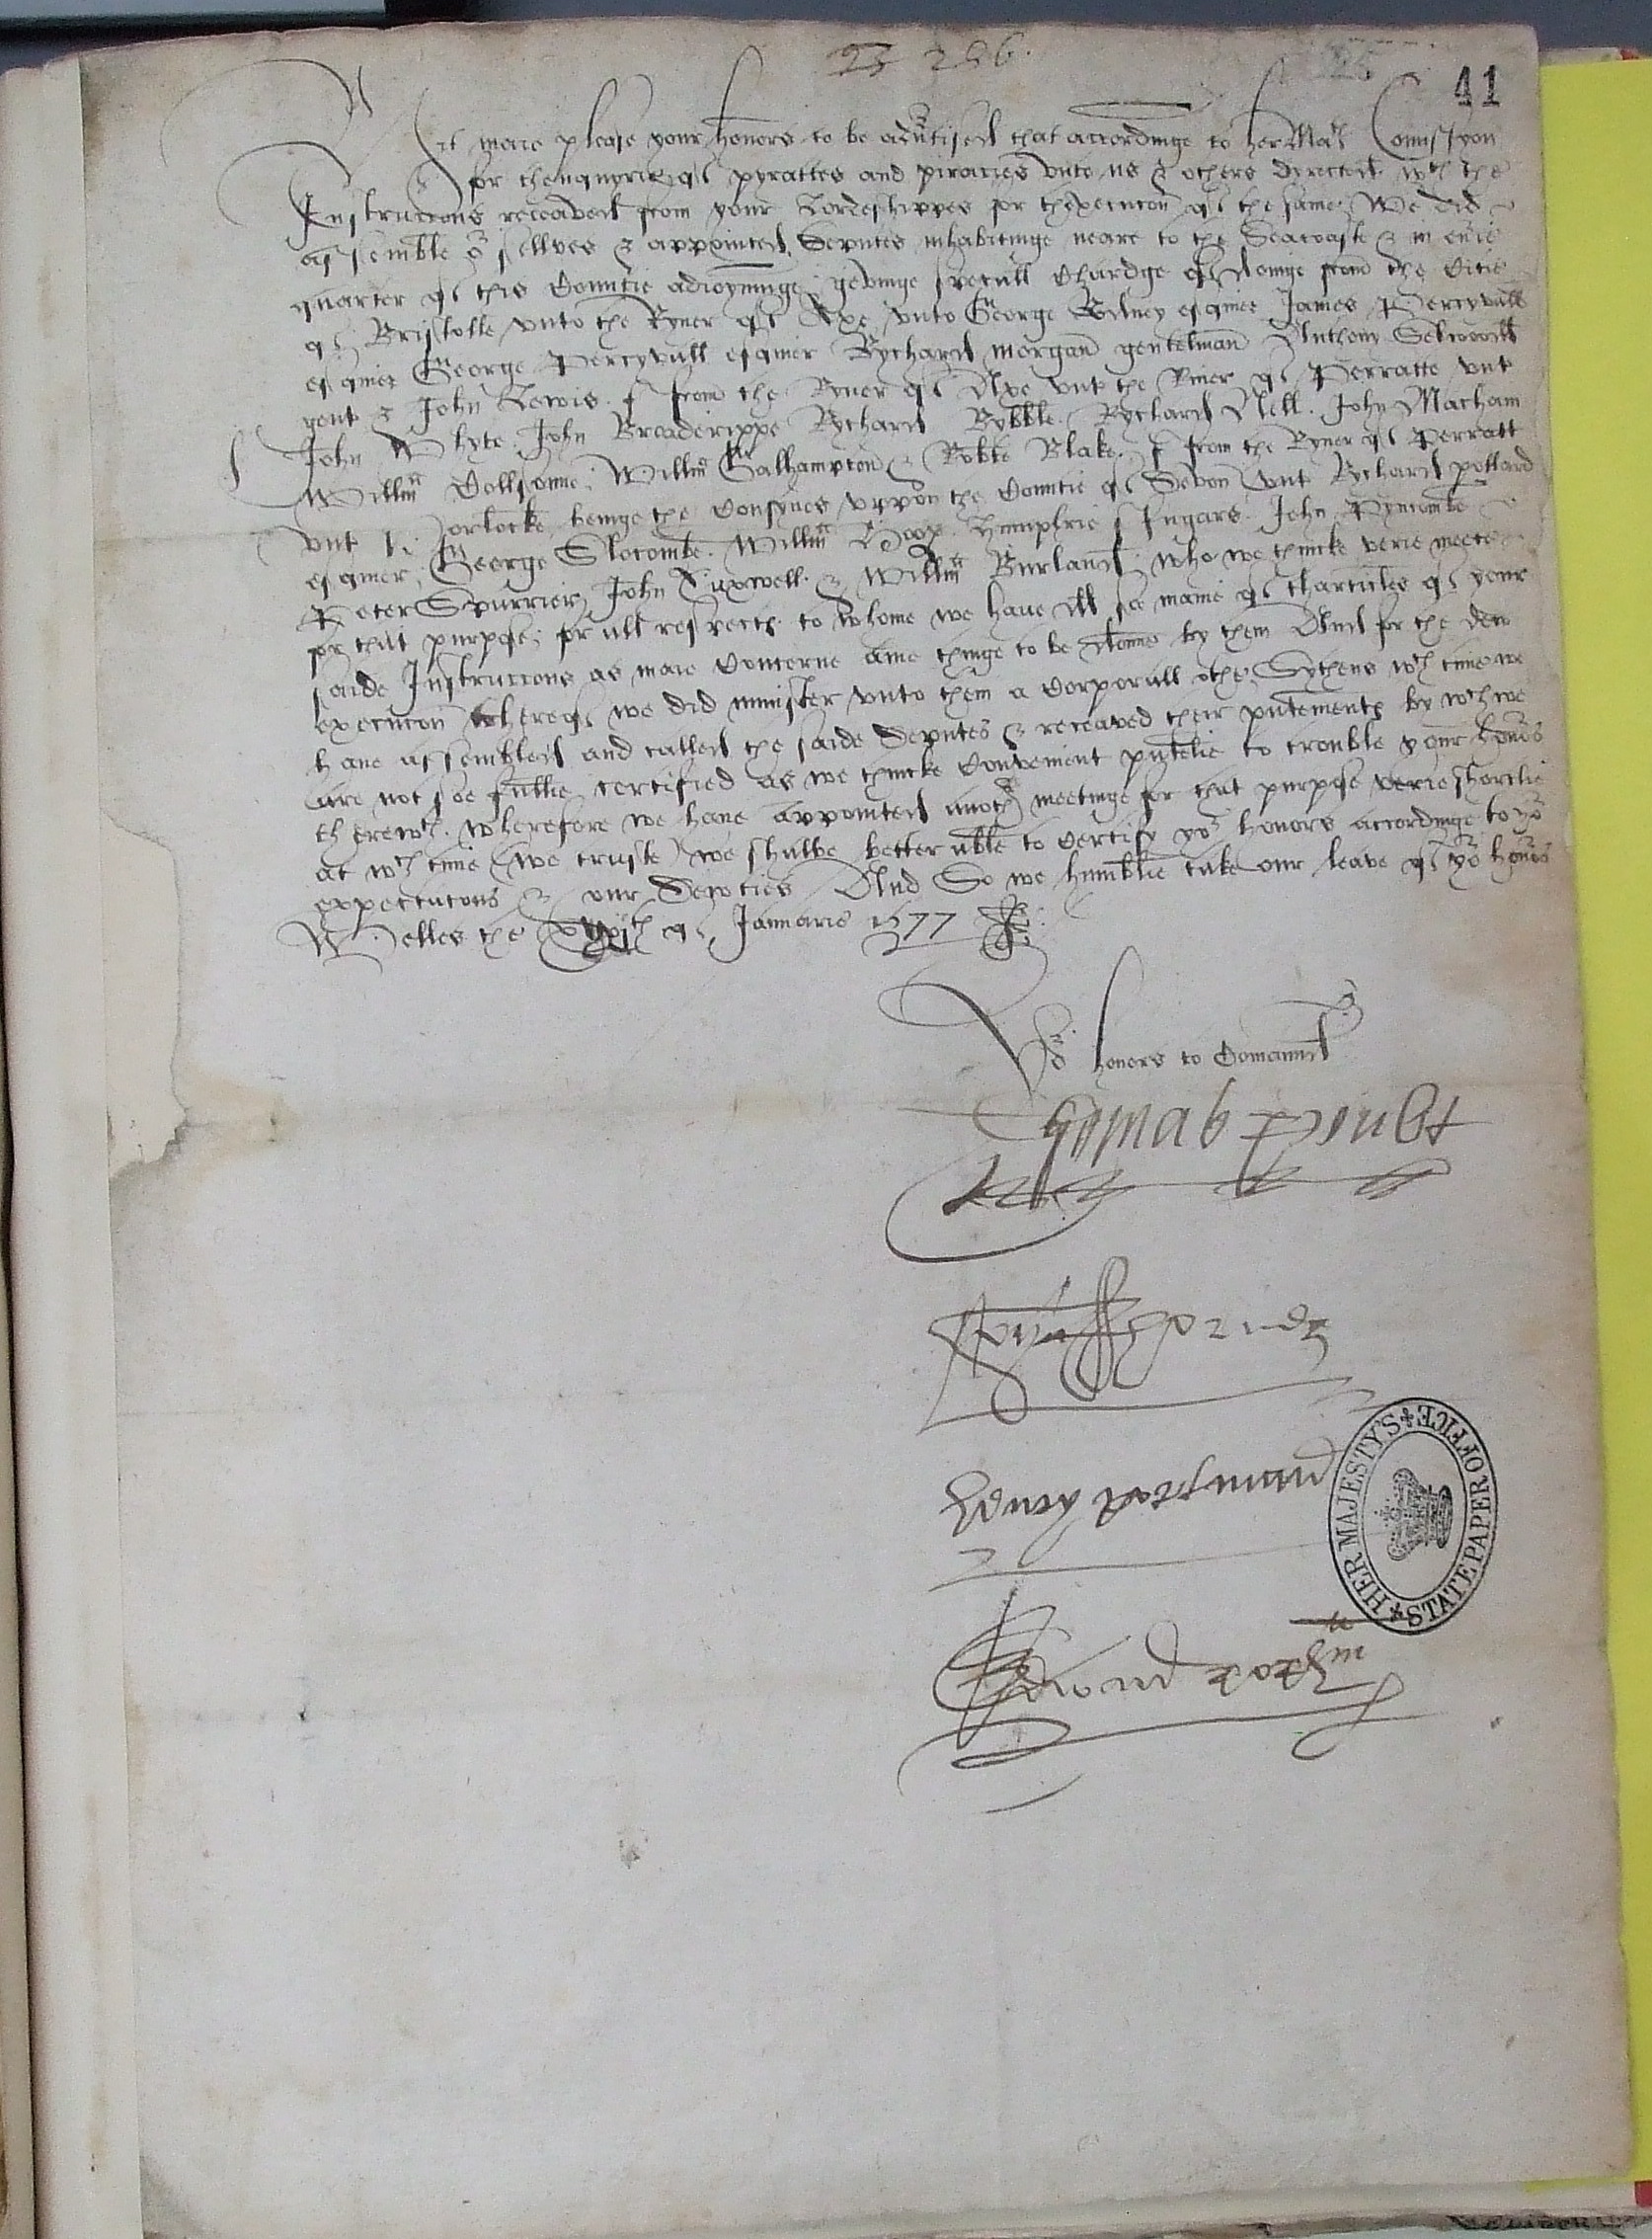 25 256.
41
It maie please your honors to be adv'tised that accordinge to her Ma'ts Comissyon
for thenquyrie of pyrattes and piracies vnto us & others directed w'th the
Instruccons receaved from your Lordeshippes for thexecucon of the same. We did
assemble o'r sellves & appointed Deputes inhabitinge neare to the Seacoaste & in eu'ie
quarter of this Countie adioyninge, gevinge specull Chardge of donige from the Citie
of Bristolle vnto the Ryuer of Axe vnto George Rodney esquier James Percyvall
esquier George Percyvull esquier Rychard morgan gentelman Anthony
gent & John Lewis. & from the Ryuer of Axe vnt the Riuer of Perratte vnt
John Whyte. John Broaderippe Rychard Bybble. Rychard Nell. John Macham
Will'm Collsonne. Will'm Galhampton & Rob'te Blake. & from the Ryuer of Perratt
vnt Porlocke beinge the confynes vppon the Countie of Devon vnt Rychard pollard
esquier, George Slocombe. Will'm Humphrie Ingars. John Pyncombe
Peter Spurrier, John Cuxwell. & Will'm Burland. who we thincke verie meete
for that purpose, for all respects. to whome we haue soe manie of tharticles of your
saide Instruccons as maie Concerne anie thinge to be donne by them And for the dew
execucon whereof we did minister vnto them a Corporall othe, Sythens w'ch time we
haue assembled and called the saide Deputes & receaved their p'ntements by w'ch we
are not soe fullie certified as we thincke Convenient p'ntelie to trouble your hono's
therew'th. wherefore we haue appointed anoth'r meetinge for that purpose verie shortlie
at w'ch time (we truste) we shalbe better able to certify yo'r honors accordinge to yo'r
expectacons & our Dewties And So we humblie take our leave of yo'r hono's
Welles the of Januarie 1577
Yo'r honors to Comaund
henry portman
HER MAJESTY'S STATE PAPER OFFICE